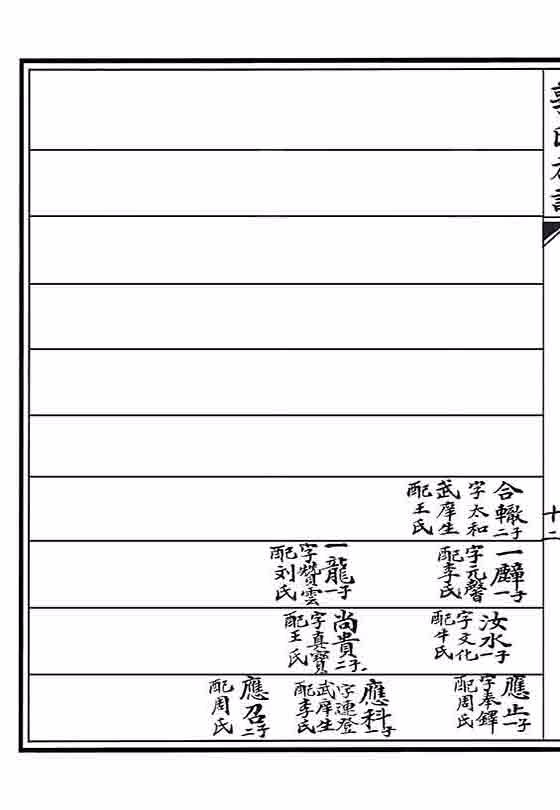 十二
合轍二子
字太和
武庠生
配王氏
一麞一子
字元馨
配李氏
一龍一子
字贊雲
配刘氏
汝水一子
字文化
配牛氏
尚貴二子
字真寶
配王氏
應止一子
字奉鐸
配周氏
應科一子
字連登
武庠生
配李氏
應召二子
配周氏